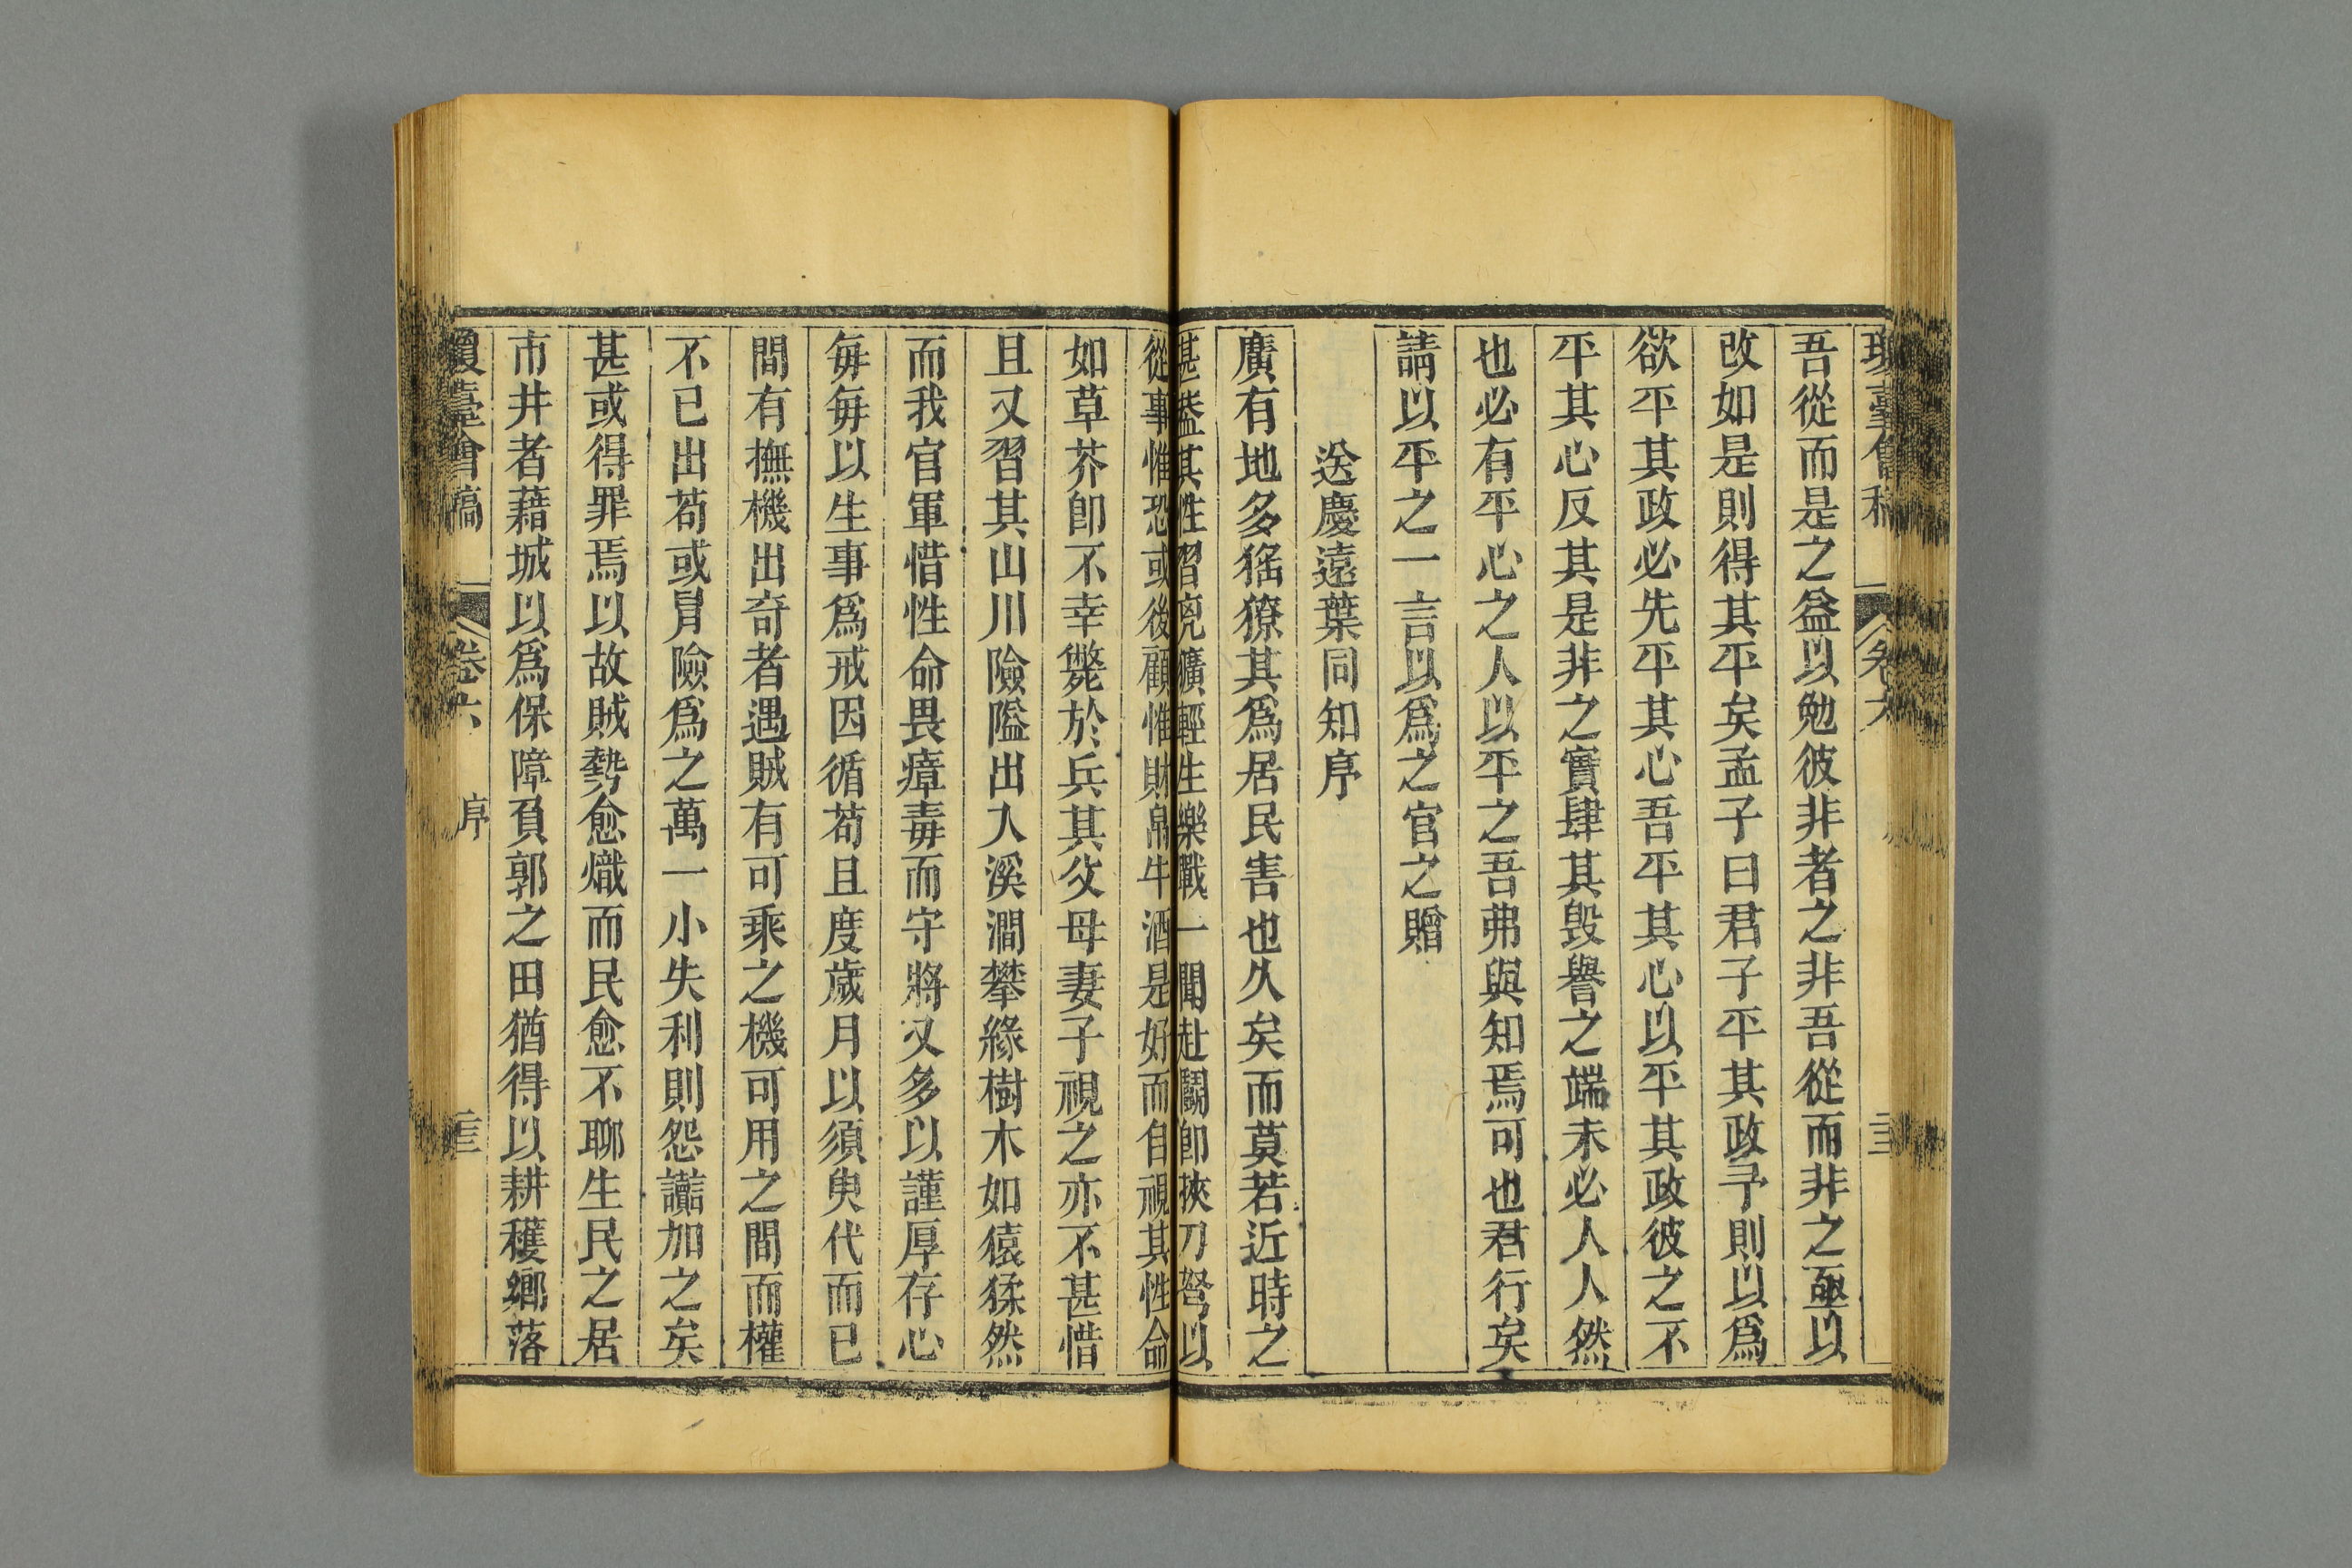 瓊臺會稿 卷六 二三
吾從而是之益以勉彼非者之非吾從而非之亟以
改如是則得其平矣孟子曰君子平其政予則以爲
欲平其政必先平其心吾平其心以平其政彼之不
平其心反其是非之實肆其毀譽之端未必人人然
也必有平心之人以平之吾弗與知焉可也君行矣
請以平之一言以爲之官之贈
送慶遠葉同知序
廣有地多猺獠其爲居民害也久矣而莫若近時之
甚葢其性習兇獷輕生樂戰一聞赴鬭卽挾刀弩以
從事惟恐或後顧惟財帛牛酒是好而自視其性命
如草芥卽不幸斃於兵其父母妻子視之亦不甚惜
且又習其山川險隘出入溪澗攀緣樹木如猿猱然
而我官軍惜性命畏瘴毒而守將又多以謹厚存心
每每以生事爲戒因循苟且度歲月以須臾代而已
間有撫機出奇者遇賊有可乘之機可用之間而權
不已出苟或冐險爲之萬一小失利則怨讟加之矣
甚或得罪焉以故賊勢愈熾而民愈不聊生民之居
市井者藉城以爲保障負郭之田猶得以耕穫鄉落
瓊臺會稿 卷六 序